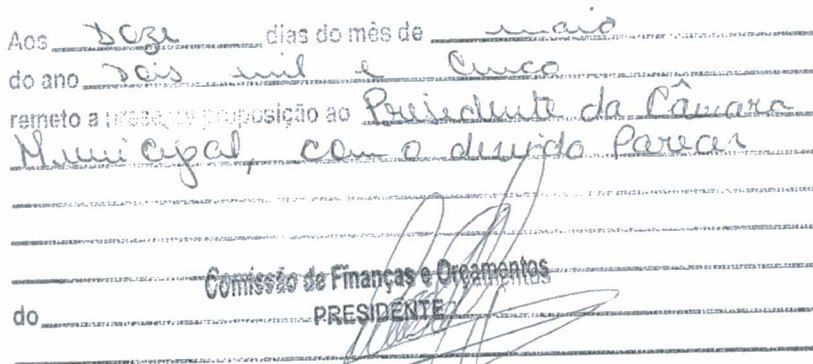 Aos Doze dias do mês de maio
do ano Dois mil e Cinco
remeto a presente proposição ao Presidente da Câmara
Municipal, com o devido Parecer
Comissão de Finanças e Orçamentos
do PRESIDENTE